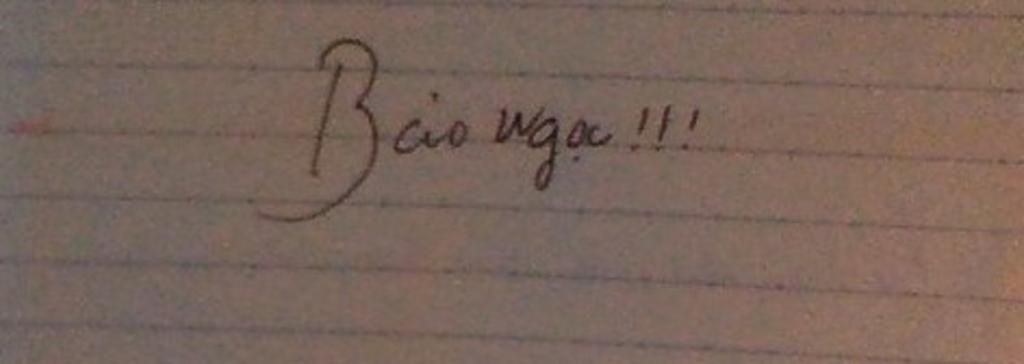 Bảo Ngọc!!!